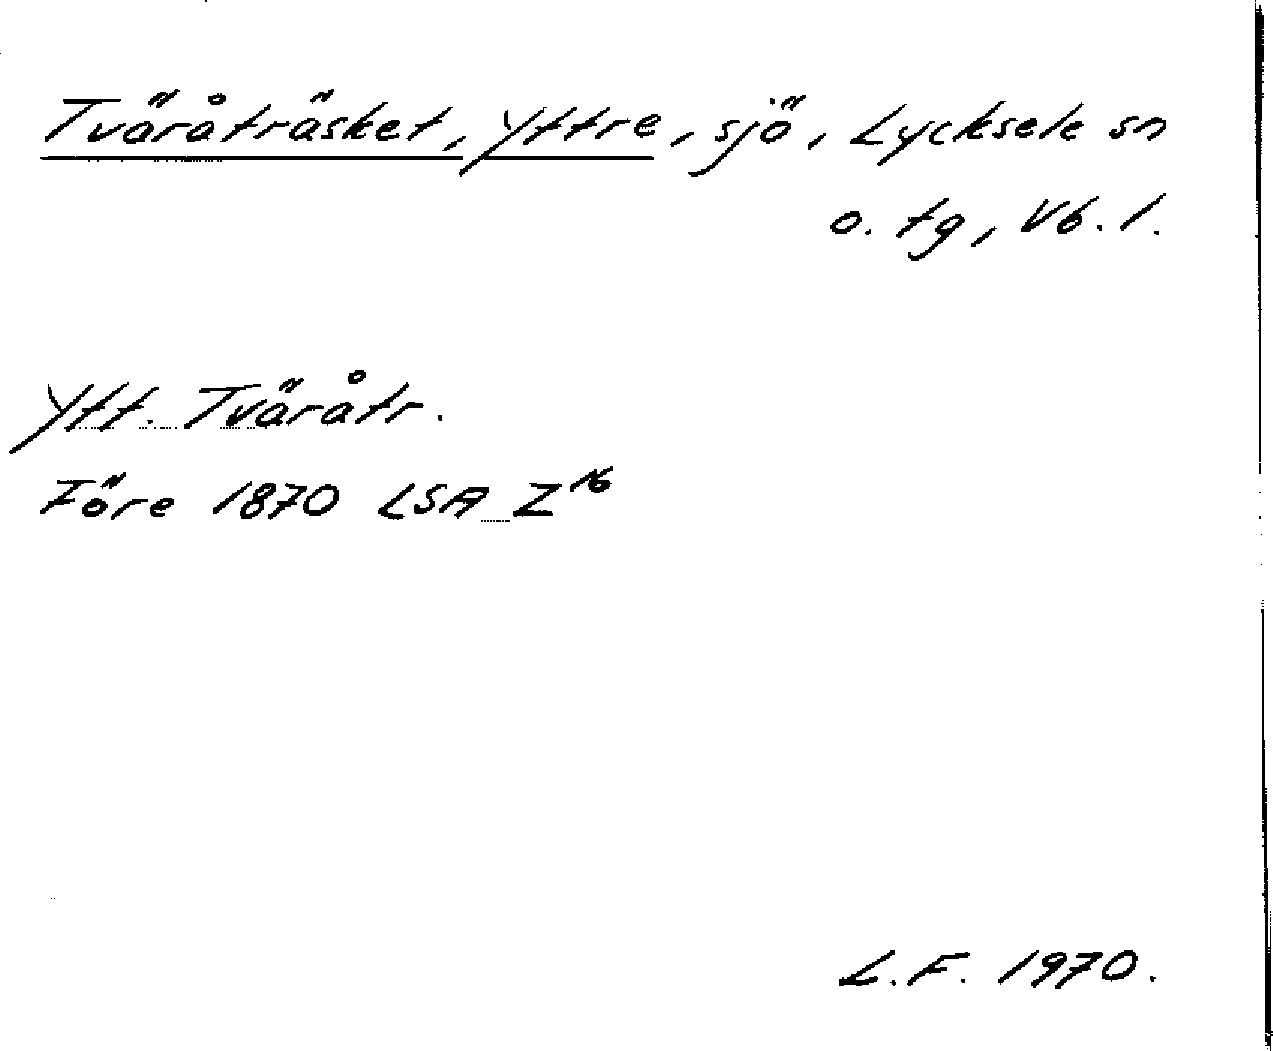 Tväråträsket, Yttre, sjö, Lycksele sn
o. tg, Vb. l.
Ytt. Tväråtr.
Före 1870 LSA Z16
L.F. 1970.